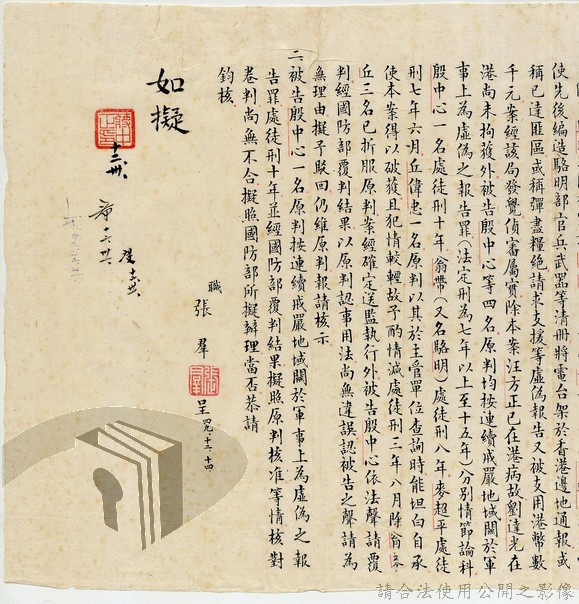 使先後編造駱明部官兵武器等清冊將電台架於香港邊地通報或
稱已達匪區或稱彈盡糧絕請求支援等虛偽報告又被支用港幣數
千元案經該局發覺偵審屬實除本案汪方正已在港病故劉達光在
港尚未拘獲外被告殷中心等四名原判均按連續戒嚴地域關於軍
事上為虛偽之報告罪(法定刑為七年以上至十五年)分別情節論科
殷中心一名處徒刑十年翁帶(又名駱明)處徒刑八年麥超平處徒
刑七年六月丘偉忠一名原判以其於主管單位查詢時能坦白自承
使本案得以破獲且犯情較輕故予酌情減處徒刑三年八月除翁麥
丘三名已折服原判案經確定送監執行外被告殷中心依法聲請覆
判經國防部覆判結果以原判認事用法尚無違誤認被告之聲請為
無理由擬予駁回仍維原判報請核示
二被告殷中心一名原判按連續戒嚴地域關於軍事上為虛偽之報
告罪處徒刑十年並經國防部覆判結果擬照原判核准等情核對
卷判尚無不合擬照國防部所擬辦理當否恭請
鈞核
職張羣
張羣
呈四九十二十四
如擬
蔣中正印
十二卅
請合法使用公開之影像